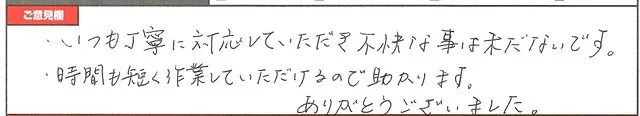 ご意見欄
・いつも丁寧に対応していただき不快な事は未だないです。
・時間も短く作業していただけるので助かります。
ありがとうございました。